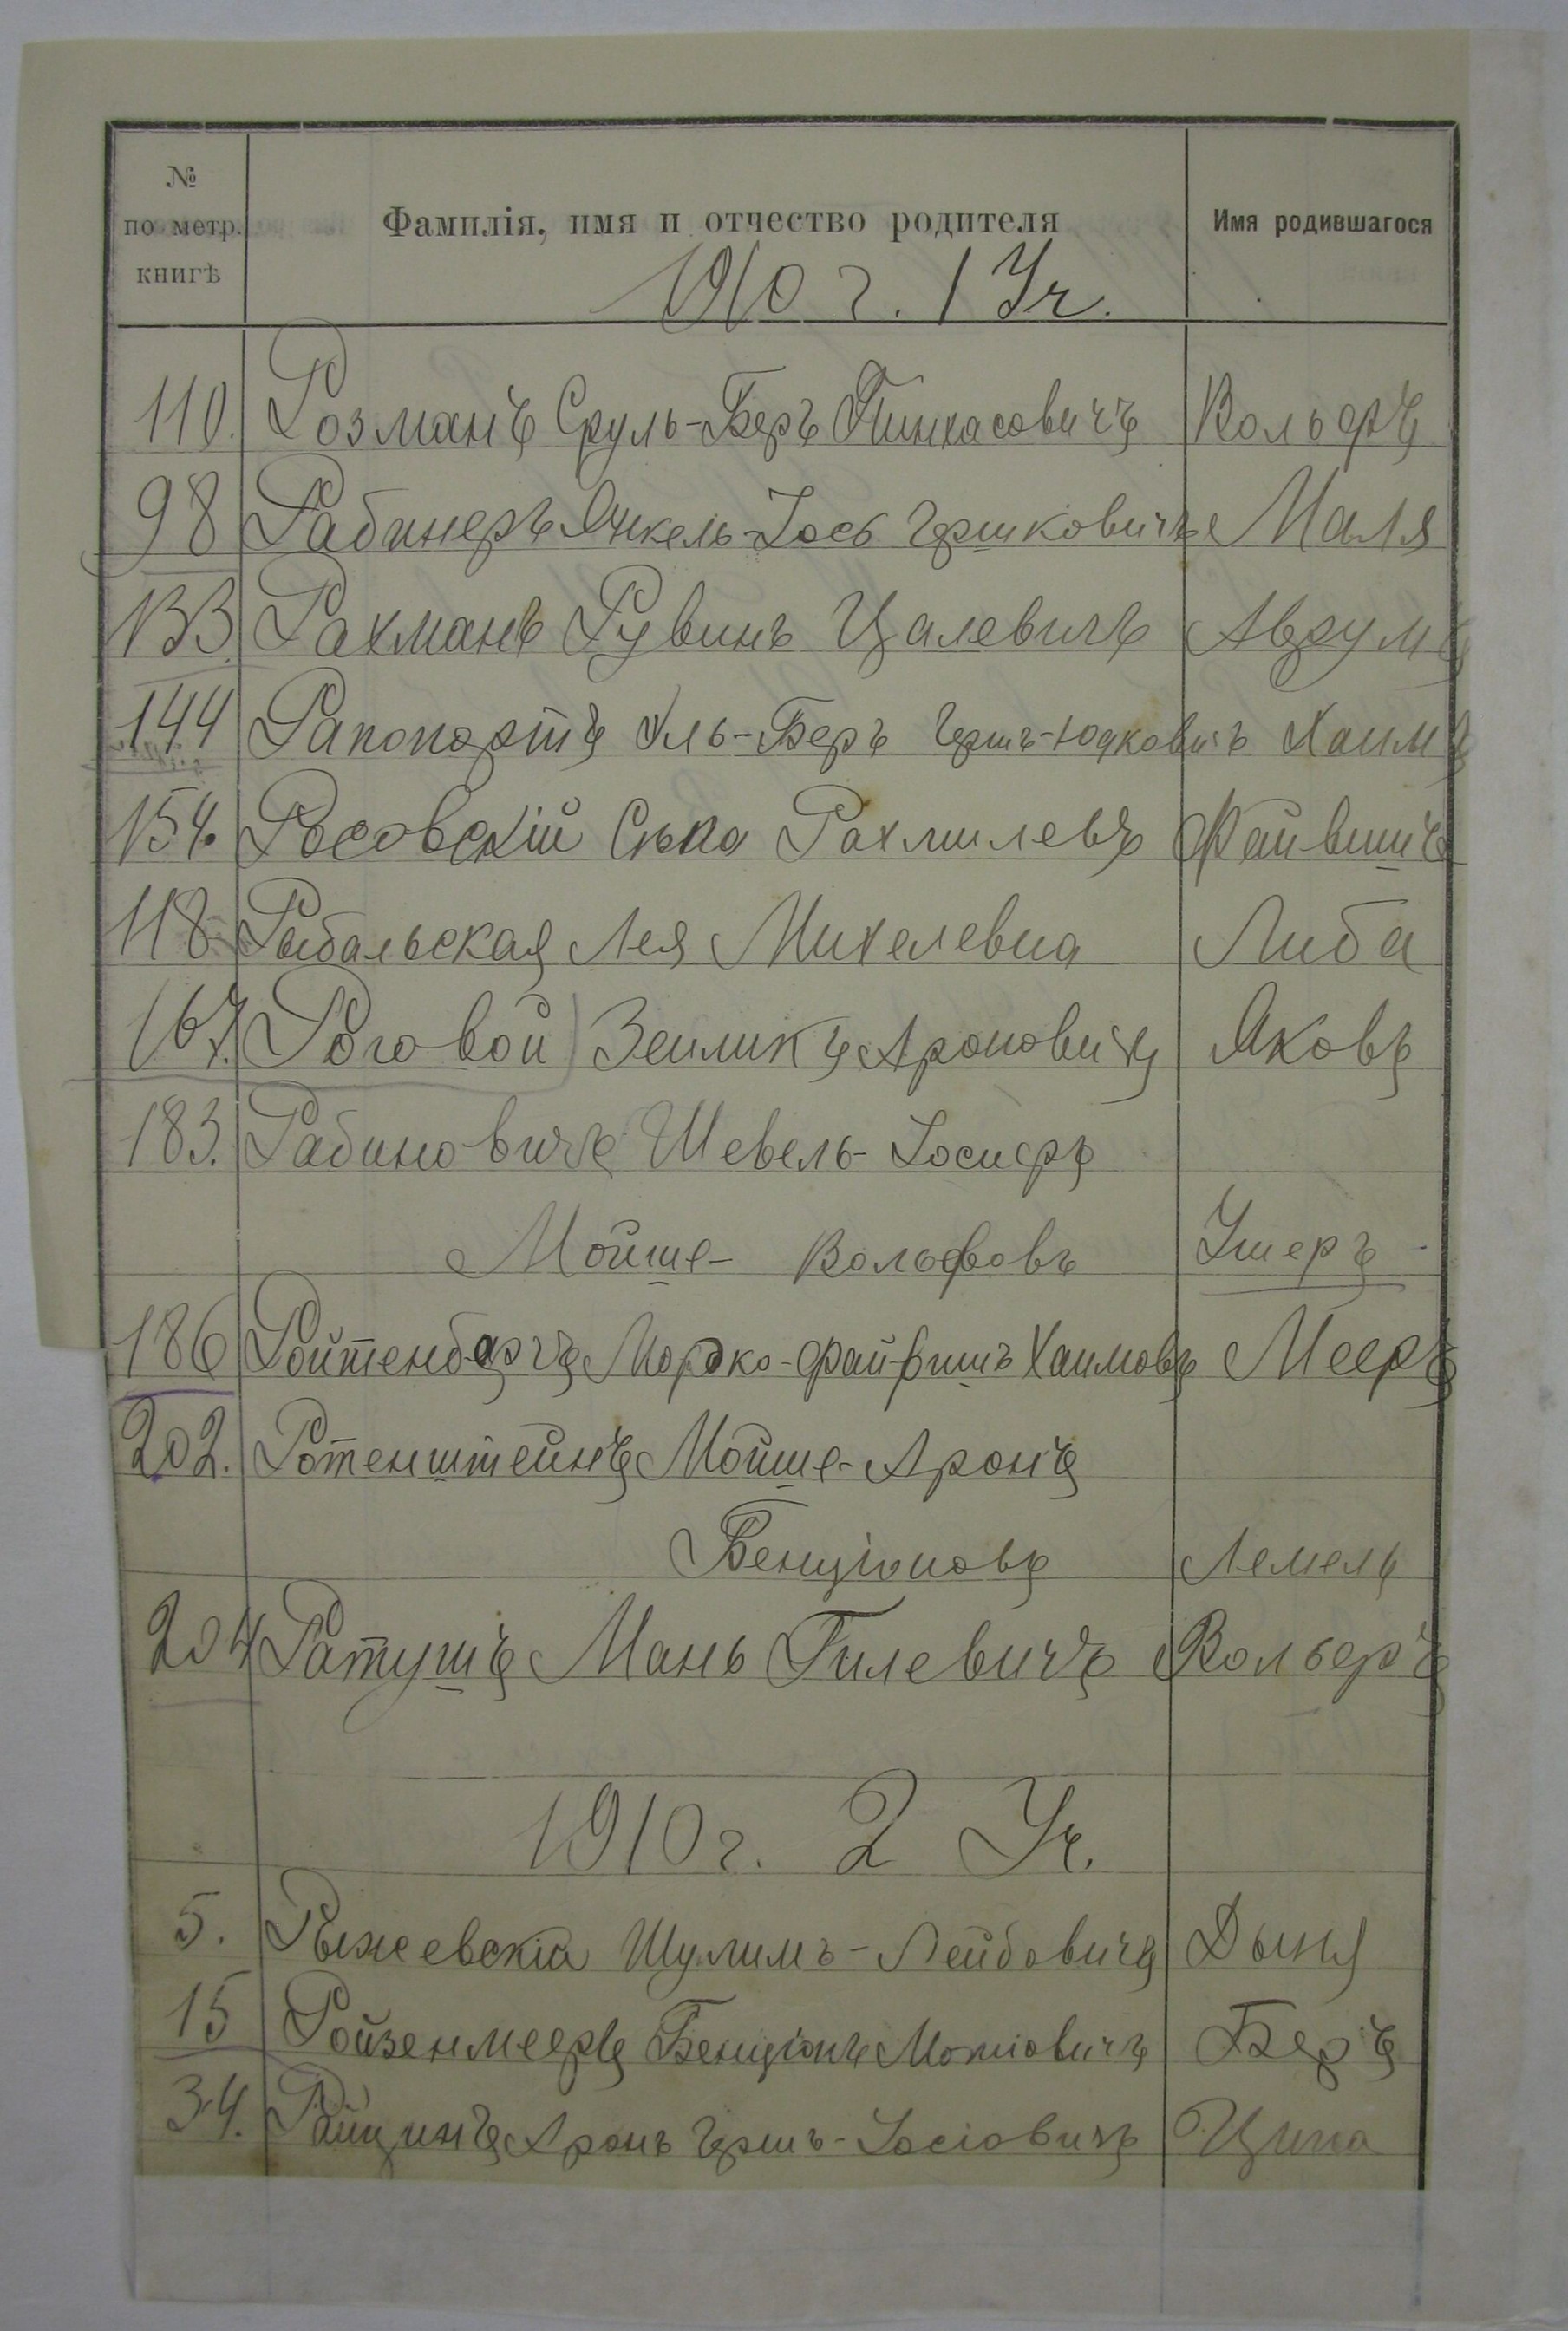 № по метр. книгѣ Фамилія, имя и отчество родителя Имя родившагося
1910 г. 1 Уч.
110. Розманъ Сруль-Беръ Пинхасовичъ Вольфъ
98 Рабинеръ Янкель-Іось Гершковичъ Маля
133. Рахманъ Рувинъ Цалевичъ Аврумъ
144 Рапопортъ Иль-Беръ Гершъ-Юдковичъ Хаимъ
154. Росовскій Рахмилевъ Файвишъ
118 Рыбальская Лея Михелевна Либа
167. Роговой Зейликъ Ароновичъ Яковъ
183. Рабиновичъ Шевель-Іосифъ
Мойше-Вольфовъ Ушеръ
186 Ройтенбаргъ Мордко-Файвишъ Хаимовъ Мееръ
202. Ротенштейнъ Мойше-Аронъ
Бенціоновъ Лемель
204 Ратушъ Мань Гилевичъ Вольфъ
1910 г. 2 Уч.
5. Рыжевскій Шулимъ-Лейбовичъ Дыня
15 Ройзенмееръ Бенціонъ Мотіовичъ Беръ
34. Райцинъ Аронъ Гершъ-Іосіовичъ Ципа